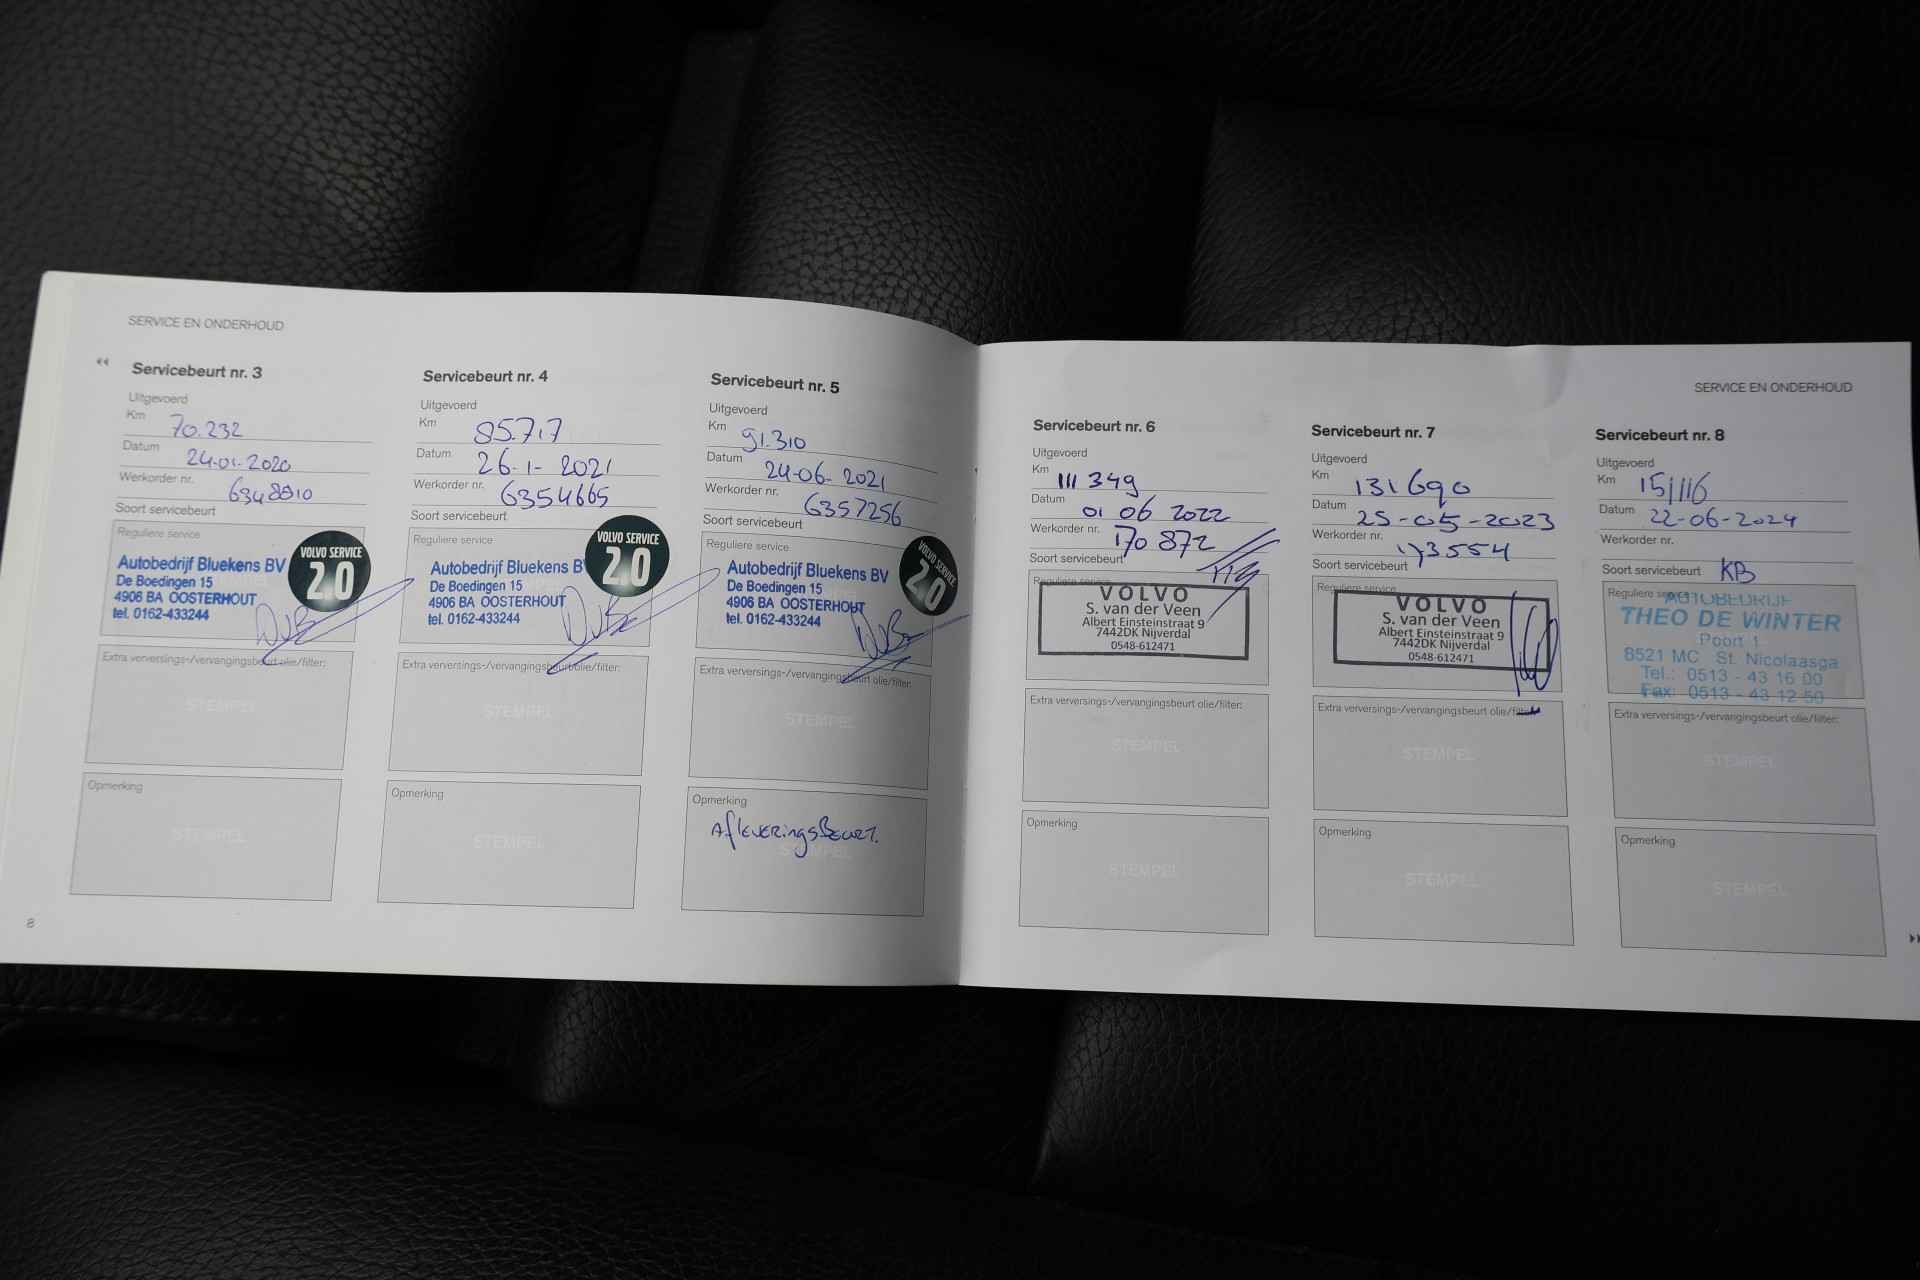 SERVICE EN ONDERHOUD
Servicebeurt nr. 3
Uitgevoerd
Km 70.232
Datum 24-01-2020
Werkorder nr. 6348810
Soort servicebeurt
Reguliere service
Autobedrijf Bluekens BV
De Boedingen 15
4906 BA OOSTERHOUT
tel. 0162-433244
VOLVO SERVICE
2.0
Extra verversings-/vervangingsbeurt olie/filter:
STEMPEL
Opmerking
STEMPEL
8
Servicebeurt nr. 4
Uitgevoerd
Km 85.717
Datum 26-1-2021
Werkorder nr. 6354665
Soort servicebeurt
Reguliere service
Autobedrijf Bluekens B
De Boedingen 15
4906 BA OOSTERHOUT
tel. 0162-433244
VOLVO SERVICE
2.0
Extra verversings-/vervangingsbeurt olie/filter:
STEMPEL
Opmerking
STEMPEL
Servicebeurt nr. 5
Uitgevoerd
Km 91.310
Datum 24-06-2021
Werkorder nr. 6357256
Soort servicebeurt
Reguliere service
Autobedrijf Bluekens BV
De Boedingen 15
4906 BA OOSTERHOUT
tel. 0162-433244
VOLVO SERVICE
2.0
Extra verversings-/vervangingsbeurt olie/filter:
STEMPEL
Opmerking
AfleveringsBeurt.
STEMPEL
SERVICE EN ONDERHOUD
Servicebeurt nr. 6
Uitgevoerd
Km 111 349
Datum 01 06 2022
Werkorder nr. 170 872
Soort servicebeurt
Reguliere service
VOLVO
S. van der Veen
Albert Einsteinstraat 9
7442DK Nijverdal
0548-612471
Extra verversings-/vervangingsbeurt olie/filter:
STEMPEL
Opmerking
STEMPEL
Servicebeurt nr. 7
Uitgevoerd
Km 131690
Datum 25-05-2023
Werkorder nr. 173554
Soort servicebeurt
Reguliere service
VOLVO
S. van der Veen
Albert Einsteinstraat 9
7442DK Nijverdal
0548-612471
Extra verversings-/vervangingsbeurt olie/filter:
STEMPEL
Opmerking
STEMPEL
Servicebeurt nr. 8
Uitgevoerd
Km 151116
Datum 22-06-2024
Werkorder nr.
Soort servicebeurt KB
Reguliere service
AUTOBEDRIJF
THEO DE WINTER
Poort 1
8521 MC St. Nicolaasga
Tel.: 0513 - 43 16 00
Fax: 0513 - 43 12 50
Extra verversings-/vervangingsbeurt olie/filter:
STEMPEL
Opmerking
STEMPEL